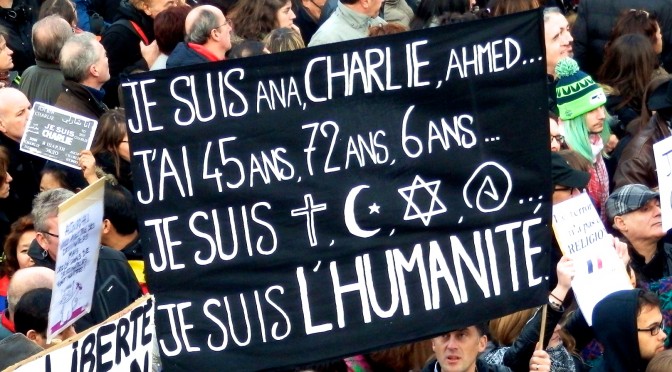 JE SUIS ANA, CHARLIE, AHMED...
J'AI 45 ANS, 72 ANS, 6 ANS...
JE SUIS ✝, ☪, ✡, Ⓐ...
JE SUIS L'HUMANITÉ.
JE SUIS
CHARLIE
LIBERTÉ
RELIGION